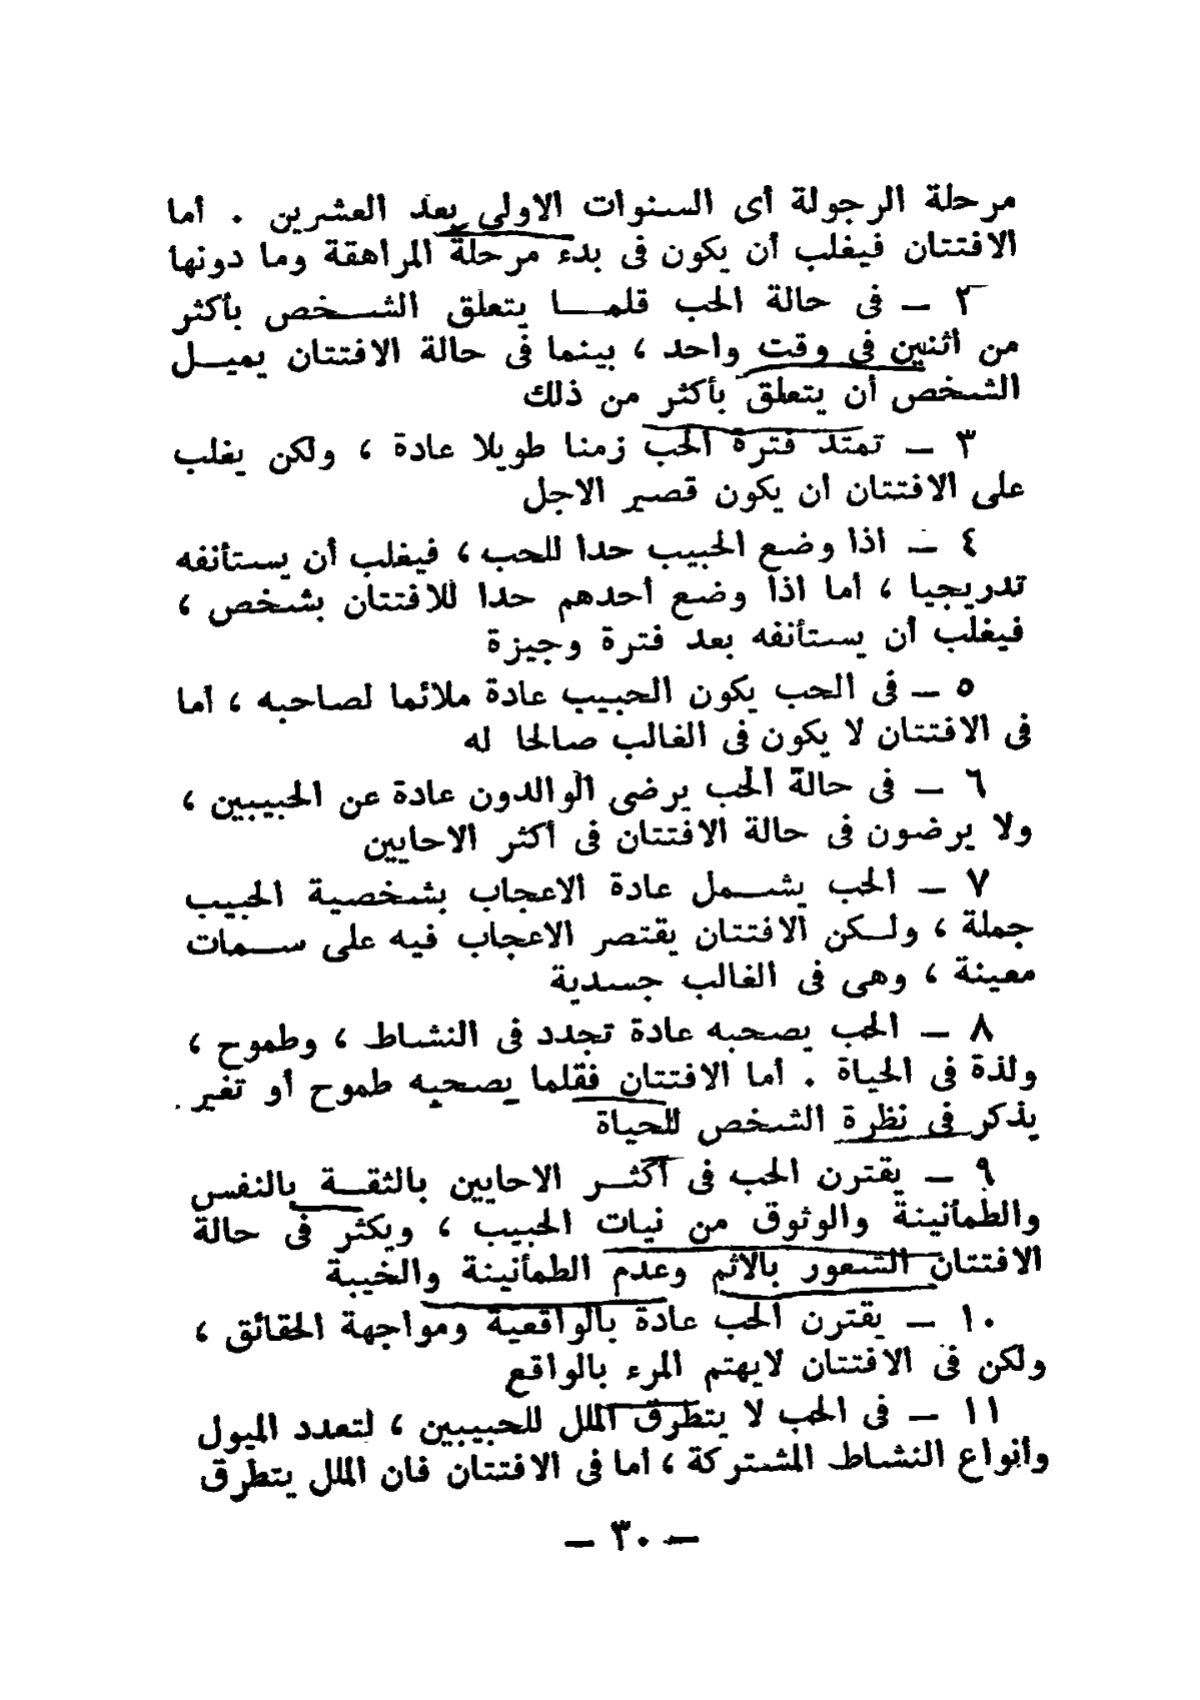 مرحلة الرجولة أى السنوات الاولى بعد العشرين . أما
الافتتان فيغلب أن يكون فى بدء مرحلة المراهقة وما دونها
٢ — فى حالة الحب قلمـــا يتعلق الشـــخص بأكثر
من اثنين فى وقت واحد ، بينما فى حالة الافتتان يميـــل
الشخص أن يتعلق بأكثر من ذلك
٣ — تمتد فترة الحب زمنا طويلا عادة ، ولكن يغلب
على الافتتان ان يكون قصير الاجل
٤ — اذا وضع الحبيب حدا للحب ، فيغلب أن يستأنفه
تدريجيا ، أما اذا وضع أحدهم حدا للافتتان بشخص ،
فيغلب أن يستأنفه بعد فترة وجيزة
٥ — فى الحب يكون الحبيب عادة ملائما لصاحبه ، أما
فى الافتتان لا يكون فى الغالب صالحا له
٦ — فى حالة الحب يرضى الوالدون عادة عن الحبيبين ،
ولا يرضون فى حالة الافتتان فى أكثر الاحايين
٧ — الحب يشـــمل عادة الاعجاب بشخصية الحبيب
جملة ، ولـــكن الافتتان يقتصر الاعجاب فيه على ســـمات
معينة ، وهى فى الغالب جسدية
٨ — الحب يصحبه عادة تجدد فى النشاط ، وطموح ،
ولذة فى الحياة . أما الافتتان فقلما يصحبه طموح أو تغير
يذكر فى نظرة الشخص للحياة
٩ — يقترن الحب فى أكثـــر الاحايين بالثقـــة بالنفس
والطمأنينة والوثوق من نيات الحبيب ، ويكثر فى حالة
الافتتان الشعور بالاثم وعدم الطمأنينة والخيبة
١٠ — يقترن الحب عادة بالواقعية ومواجهة الحقائق ،
ولكن فى الافتتان لايهتم المرء بالواقع
١١ — فى الحب لا يتطرق الملل للحبيبين ، لتعدد الميول
وأنواع النشاط المشتركة ، أما فى الافتتان فان الملل يتطرق
— ٣٠ —